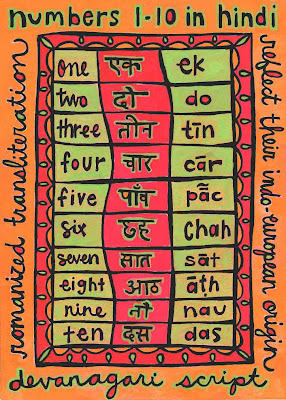 numbers 1-10 in hindi
romanized transliteration
reflect their indo-european origin
one एक ek
two दो do
three तीन tīn
four चार cār
five पाँच pā̃c
six छह chah
seven सात sāt
eight आठ āṭh
nine नौ nau
ten दस das
devanagari script